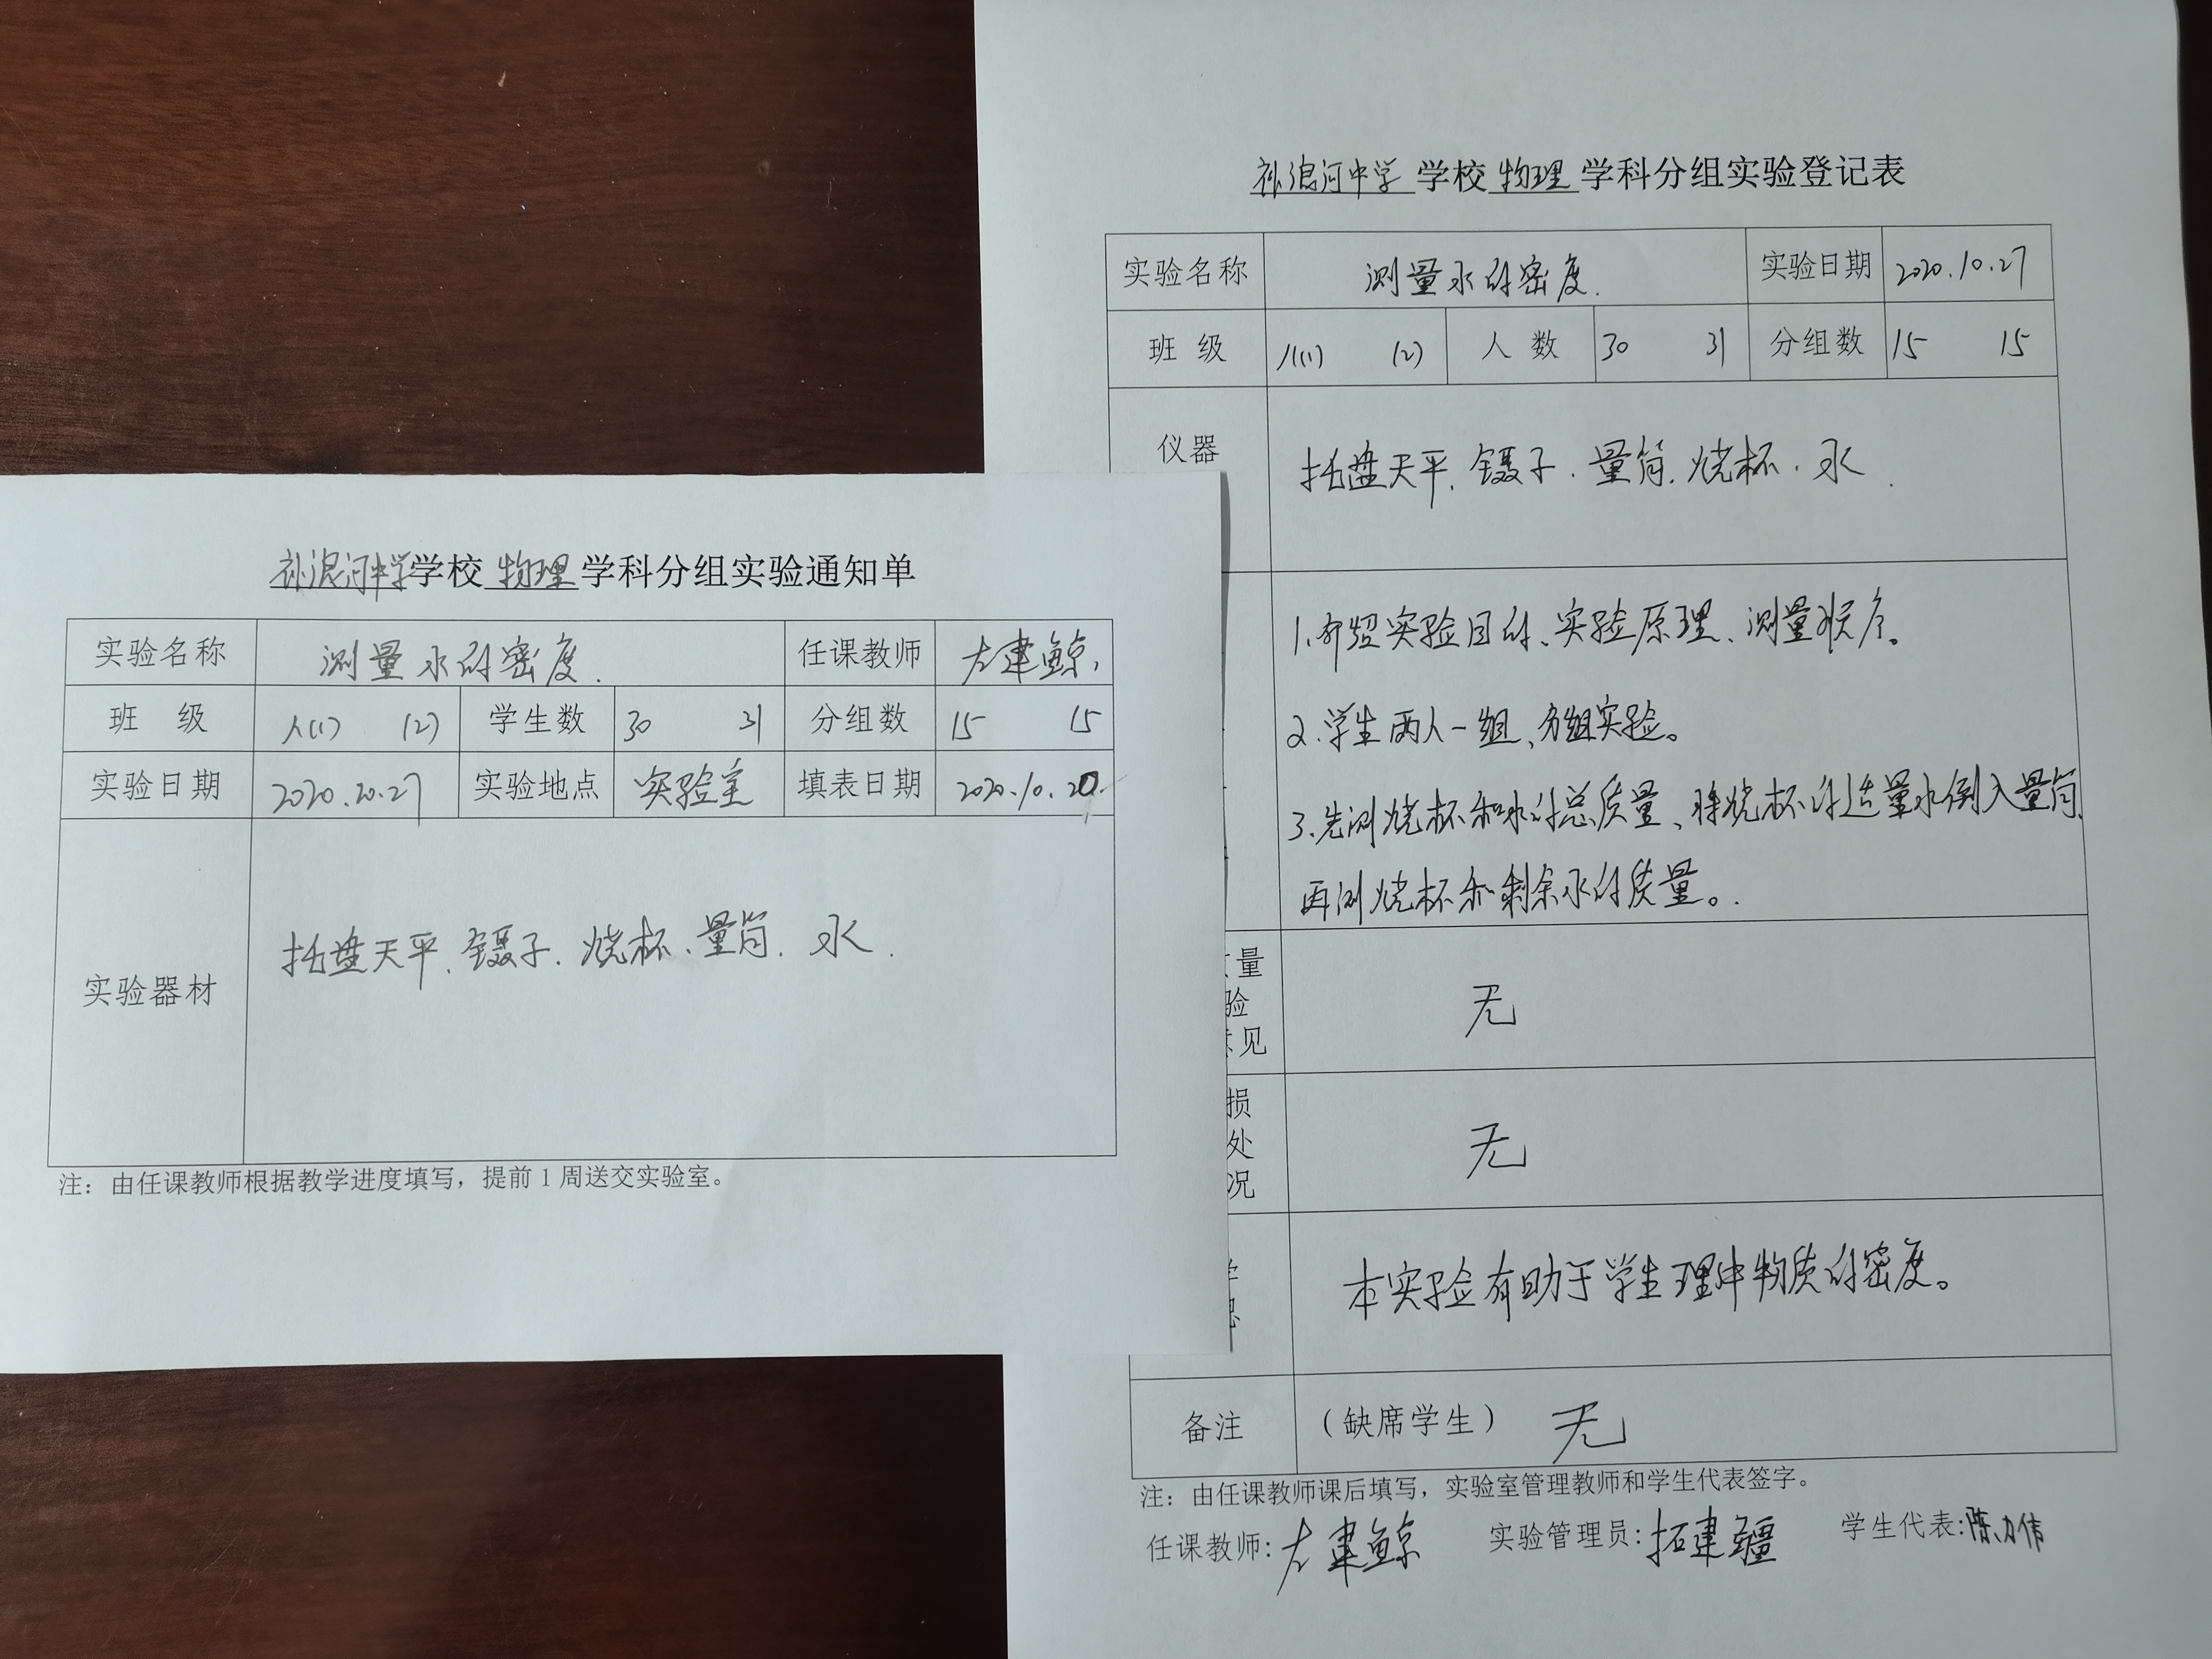 补浪河中学学校物理学科分组实验通知单
实验名称 测量水的密度. 任课教师 左建鲸
班 级 八(1) (2) 学生数 30 31 分组数 15 15
实验日期 2020.20.27 实验地点 实验室 填表日期 2020.10.20.
实验器材 托盘天平、镊子、烧杯、量筒、水.
注：由任课教师根据教学进度填写，提前1周送交实验室。
补浪河中学 学校物理学科分组实验登记表
实验名称 测量水的密度. 实验日期 2020.10.27
班 级 八(1) (2) 人 数 30 31 分组数 15 15
仪器 托盘天平、镊子、量筒、烧杯、水.
1.介绍实验目的、实验原理、测量顺序。
2.学生两人一组、分组实验。
3.先测烧杯和水的总质量、将烧杯的适量水倒入量筒、
再测烧杯和剩余水的质量。
量
验
意见
无
损
处
况
无
本实验有助于学生理中物质的密度。
备注 （缺席学生） 无
注：由任课教师课后填写，实验室管理教师和学生代表签字。
任课教师:左建鲸 实验管理员:拓建疆 学生代表:陈力伟